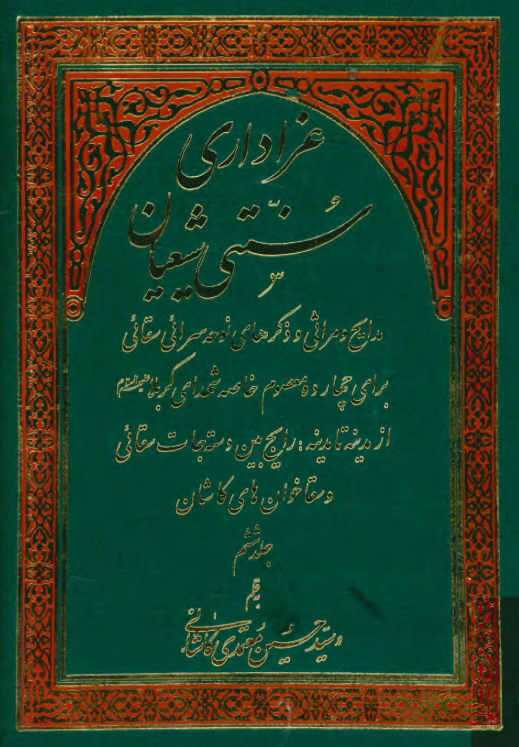 عزاداری
سُنّتی شیعیان
مدایح و مراثی و ذکرهای نوحه سرائی سقائی
برای چهارده معصوم خاصه شهدای کربلا
از مدینه تا مدینه؛ رایج بین دسته جات سقائی
و سقاخوان های کاشان
جلد ششم
بقلم
سیّد حسین معتمدی کاشانی